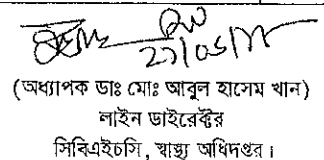 (অধ্যাপক ডাঃ মোঃ আবুল হাসেম খান)
লাইন ডাইরেক্টর
সিবিএইচসি, স্বাস্থ্য অধিদপ্তর।